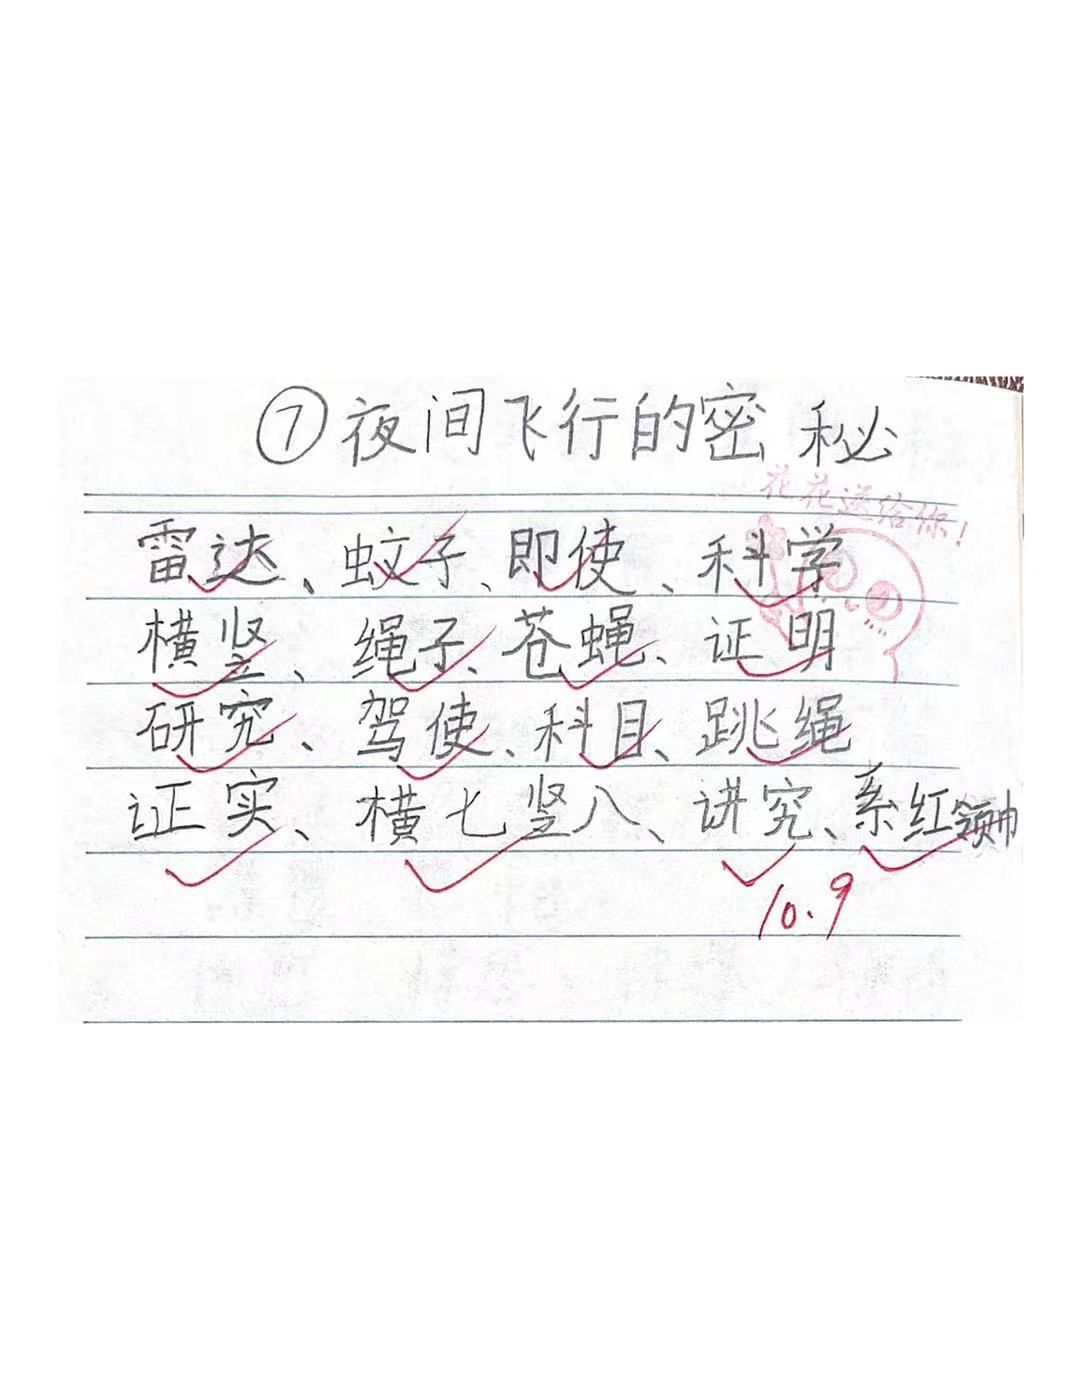 ⑦夜间飞行的密秘
花花送给你!
雷达、蚊子、即使、科学
横竖、绳子、苍蝇、证明
研究、驾使、科目、跳绳
证实、横七竖八、讲究、系红领巾
10.9